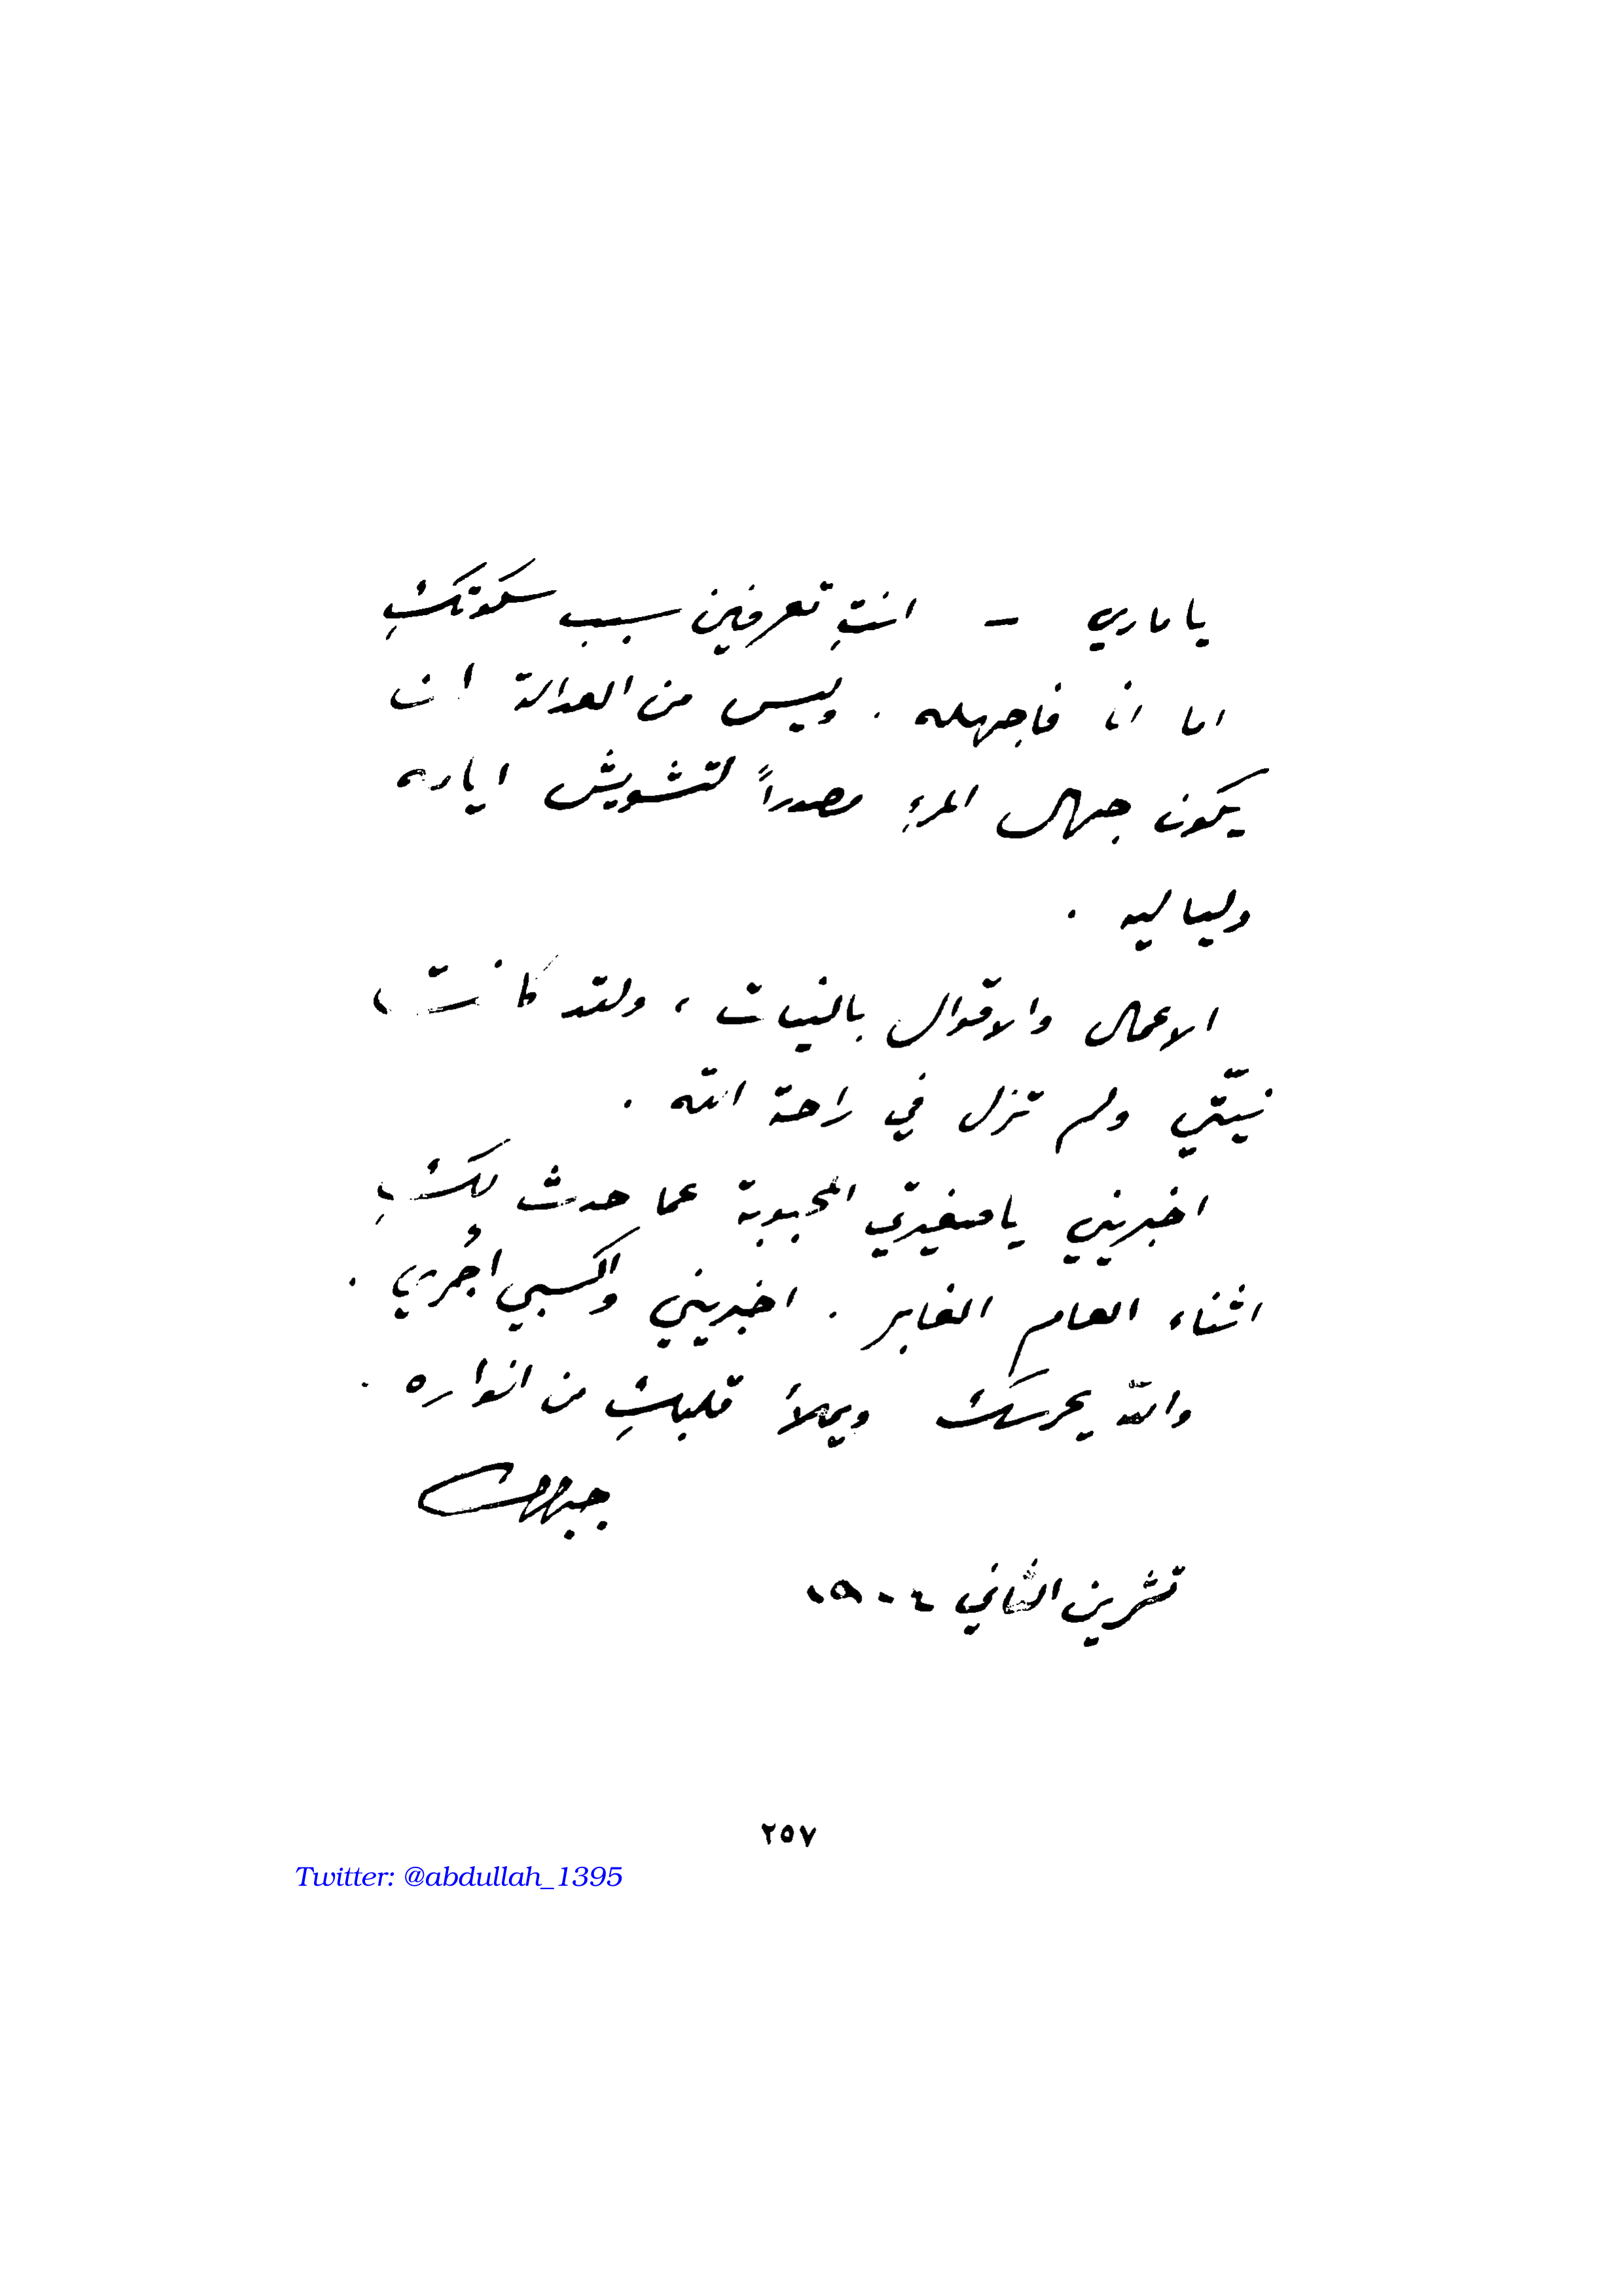 يا ماري - انتِ تعرفين سبب سكوتكِ
اما انا فاجهله . وليس من العدالة ان
يكون جهل المرءِ مصدراً لتشويش ايامه
ولياليه .
الاعمال والاقوال بالنيات ، ولقد كانت
نيتي ولم تزل في راحة الله .
اخبريني يا صغيرتي المحبوبة عما حدث لكِ
اثناء العام الغابر . اخبريني واكسبي اجُري .
والله يحرسك ويملأ قلبكِ من انواره .
جبران
تشرين الثاني
٢٥٧
Twitter: @abdullah_1395